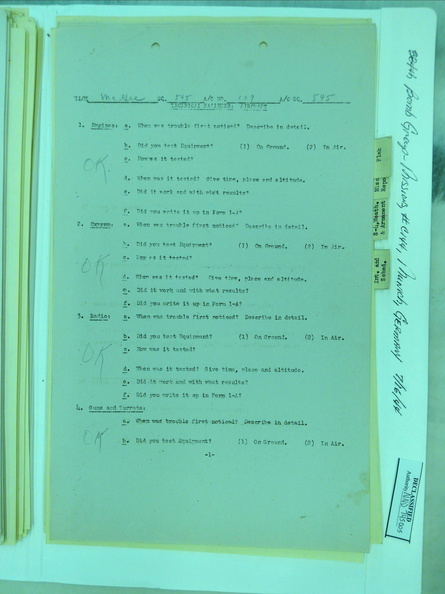 SQ. 545 A/C NO. 109 A/C SQ. 545
TECHNICAL FAILURES REPORT
1. Engines: a. When was trouble first noticed? Describe in detail.
b. Did you test Equipment? (1) On Ground. (2) In Air.
c. How was it tested?
OK
d. When was it tested? Give time, place and altitude.
e. Did it work and with what results?
f. Did you write it up in Form 1-A?
2. Oxygen: a. When was trouble first noticed? Describe in detail.
b. Did you test Equipment? (1) On Ground. (2) In Air.
c. How was it tested?
OK
d. When was it tested? Give time, place and altitude.
e. Did it work and with what results?
f. Did you write it up in Form 1-A?
3. Radio: a. When was trouble first noticed? Describe in detail.
b. Did you test Equipment? (1) On Ground. (2) In Air.
c. How was it tested?
OK
d. When was it tested? Give time, place and altitude.
e. Did it work and with what results?
f. Did you write it up in Form 1-A?
4. Guns and Turrets:
a. When was trouble first noticed? Describe in detail.
OK
b. Did you test Equipment? (1) On Ground. (2) In Air.
-1-
Flak
S-4, Weath.
& Armament
Int. and
Sched.
384th Bomb Group - Mission #
Munich, Germany
DECLASSIFIED
Authority NND 745005